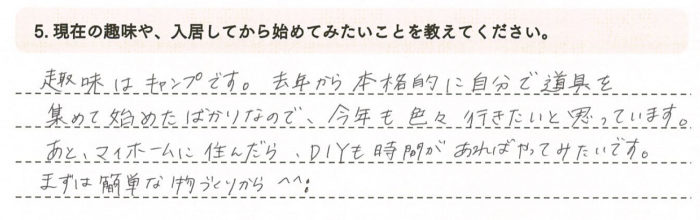 5. 現在の趣味や、入居してから始めてみたいことを教えてください。
趣味はキャンプです。去年から本格的に自分で道具を
集めて始めたばかりなので、今年も色々行きたいと思っています。
あと、マイホームに住んだら、DIYも時間があればやってみたいです。
まずは簡単な物づくりから^^;